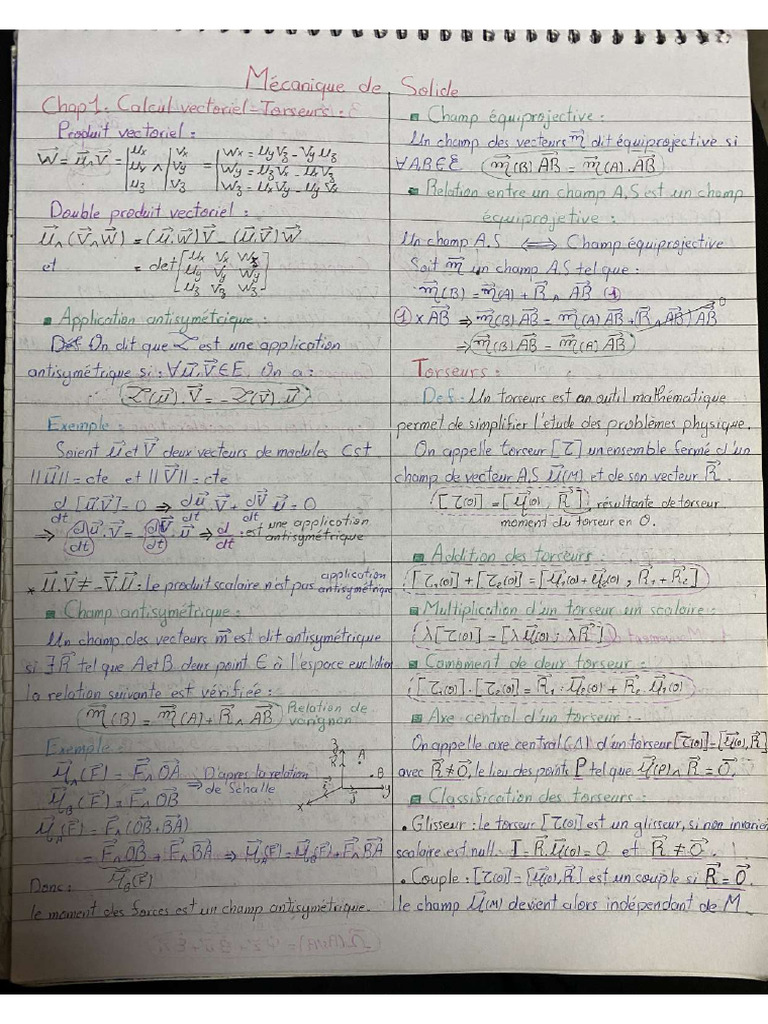 Mécanique de Solide
Chap1: Calcul vectoriel - Torseurs:
Produit vectoriel:
W⃗ = u⃗∧V⃗ = |ux uy uz ∧ |Vx Vy Vz = |Wx = uyVz - Vyuz
Wy = uzVx - uxVz
Wz = uxVy - uyVx
Double produit vectoriel:
u⃗∧(V⃗∧W⃗) = (u⃗.W⃗)V⃗ - (u⃗.V⃗)W⃗
et = det [ux Vx Wx
uy Vy Wy
uz Vz Wz]
▪ Application antisymétrique:
On dit que L est une application
antisymétrique si: ∀u⃗,V⃗∈E. On a:
L(u⃗).V⃗ = -L(V⃗).u⃗
Exemple:
Soient u⃗ et V⃗ deux vecteurs de modules Cst
||u⃗|| = cte et ||V⃗|| = cte
d/dt [u⃗V⃗] = 0 ⇒ du⃗/dt.V⃗ + dV⃗/dt.u⃗ = 0
⇒ du⃗/dt.V⃗ = -dV⃗/dt.u⃗ ⇒ d/dt: est une application antisymétrique
* u⃗.V⃗ ≠ -V⃗.u⃗: le produit scalaire n'est pas application antisymétrique
▪ Champ antisymétrique:
Un champ des vecteurs m⃗ est dit antisymétrique
si ∃R⃗ tel que A et B deux point ∈ à l'espace euclidien
la relation suivante est vérifiée:
m⃗(B) = m⃗(A) + R⃗∧AB⃗ Relation de varignon
Exemple:
M⃗A(F⃗) = F⃗∧OA⃗ D'après la relation
M⃗B(F⃗) = F⃗∧OB⃗ ⇒ de Schalle
M⃗A(F⃗) = F⃗∧(OB⃗+BA⃗)
= F⃗∧OB⃗ + F⃗∧BA⃗ ⇒ M⃗A(F⃗) = M⃗B(F⃗) + F⃗∧BA⃗
M⃗B(F⃗)
Donc:
le moment des forces est un champ antisymétrique.
z
A
B
y
x
▪ Champ équiprojective:
Un champ des vecteurs m⃗ dit équiprojective si
∀A,B∈E m⃗(B).AB⃗ = m⃗(A).AB⃗
▪ Relation entre un champ A.S est un champ
équiprojetive:
Un champ A.S ⟺ Champ équiprojective
Soit m⃗ un champ A.S tel que:
m⃗(B) = m⃗(A) + R⃗∧AB⃗ (1)
(1) x AB⃗ ⇒ m⃗(B)AB⃗ = m⃗(A)AB⃗ + (R⃗∧AB⃗)AB⃗ 0
⇒ m⃗(B)AB⃗ = m⃗(A)AB⃗
Torseurs:
Def: Un torseurs est an outil mathématique
permet de simplifier l'étude des problèmes physique.
On appelle torseur [τ] un ensemble fermé d'un
champ de vecteur A.S u⃗(M) et de son vecteur R⃗.
[τ(O)] = [u⃗(O), R⃗] résultante de torseur
moment du torseur en O.
▪ Addition des torseurs:
[τ1(O)] + [τ2(O)] = [u⃗1(O) + u⃗2(O), R⃗1 + R⃗2]
▪ Multiplication d'un torseur un scalaire:
λ[τ(O)] = [λu⃗(O); λR⃗]
▪ Comoment de deux torseur:
[τ1(O)].[τ2(O)] = R⃗1.u⃗2(O) + R⃗2.u⃗1(O)
▪ Axe central d'un torseur:-
On appelle axe central (Δ) d'un torseur [τ(O)] = [u⃗(O), R⃗]
avec R⃗≠0⃗, le lieu des points P tel que u⃗(P)∧R⃗ = 0⃗.
▪ Classification des torseurs:
• Glisseur: le torseur [τ(O)] est un glisseur, si non invarien
scalaire est null. I = R⃗.u⃗(O) = 0 et R⃗ ≠ 0⃗.
• Couple: [τ(O)] = [u⃗(O), R⃗] est un couple si R⃗ = 0⃗.
le champ u⃗(M) devient alors indépendant de M.